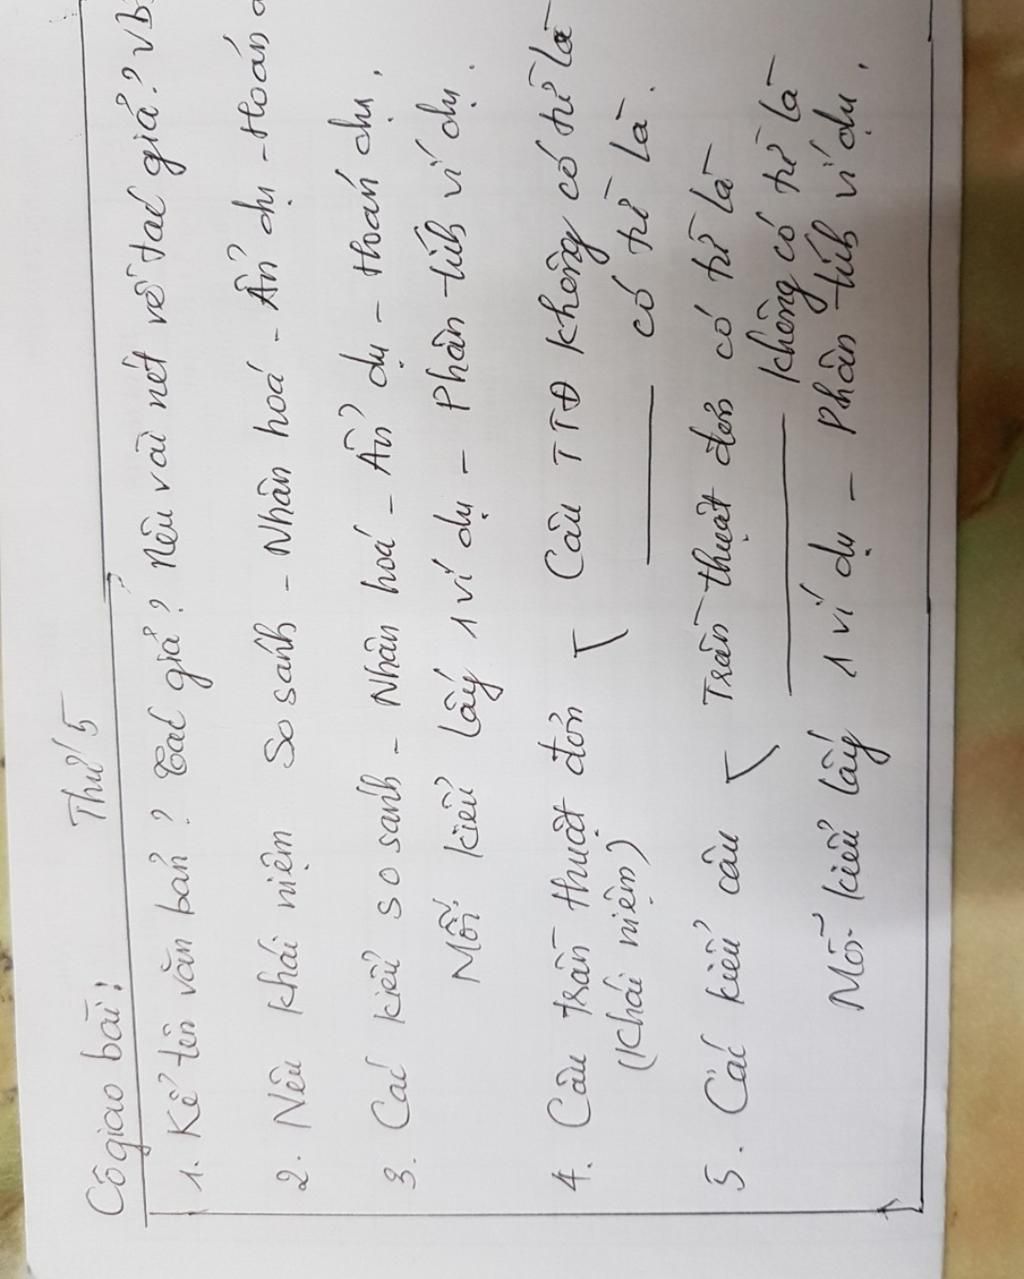 Cô giao bài! Thứ 5
1. Kể tên văn bản? Tác giả? Nêu vài nét về tác giả? vb
2. Nêu khái niệm So sánh - Nhân hoá - Ẩn dụ - Hoán
3. Các kiểu so sánh - Nhân hoá - Ẩn dụ - Hoán dụ.
Mỗi kiểu lấy 1 ví dụ - Phân tích ví dụ.
4. Câu trần thuật đơn Câu TTĐ không có từ là
(Khái niệm) có từ là.
5. Các kiểu câu Trần thuật đơn có từ là
không có từ là
Mỗi kiểu lấy 1 ví dụ - Phân tích ví dụ.